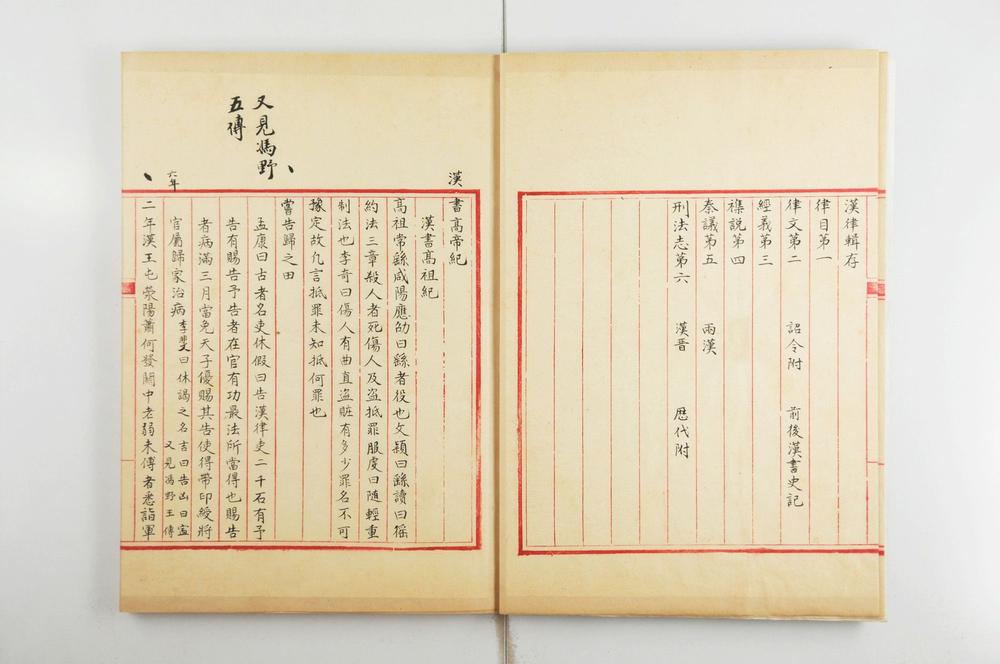 漢律輯存
律目第一
律文第二 詔令附 前後漢書史記
經義第三
襍說第四
奏議第五 兩漢
刑法志第六 漢晋 歷代附
漢書高帝紀
漢書髙祖紀
高祖常繇咸陽應劭曰繇者役也文穎曰繇讀曰徭
約法三章殺人者死傷人及盗抵罪服虔曰随輕重
制法也李奇曰傷人有曲直盗賍有多少罪名不可
豫定故凢言抵罪未知抵何罪也
嘗告歸之田
孟康曰古者名吏休假曰告漢律吏二千石有予
告有賜告予告者在官有功最法所當得也賜告
者病滿三月當免天子優賜其告使得帶印綬將
官屬歸家治病 李斐曰休謁之名吉曰告凶曰寍 又見馮野王傳
六年
二年漢王屯滎陽蕭何發関中老弱未傅者悉詣軍
又見馮野
五傳